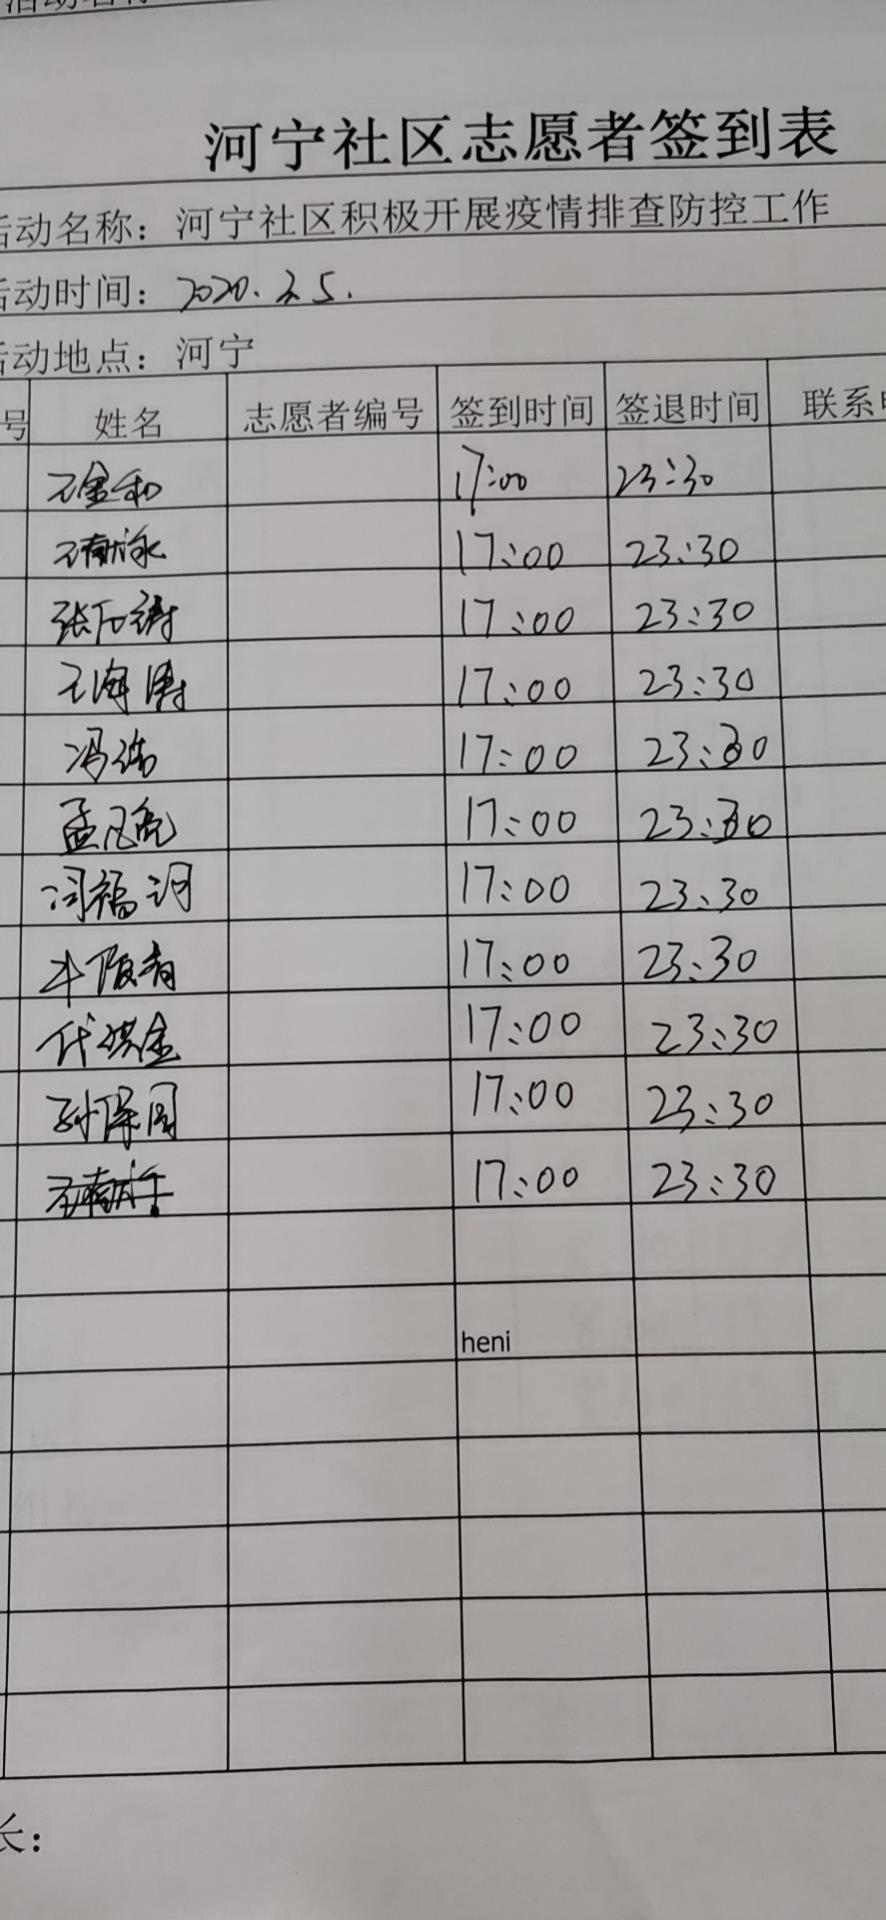 河宁社区志愿者签到表
活动名称：河宁社区积极开展疫情排查防控工作
活动时间：2020.2.5.
活动地点：河宁
号 姓名 志愿者编号 签到时间 签退时间 联系
王金和 17:00 23:30
17:00 23:30
17:00 23:30
王海涛 17:00 23:30
17:00 23:30
孟凡亮 17:00 23:30
闫福河 17:00 23:30
17:00 23:30
代洪金 17:00 23:30
孙保国 17:00 23:30
17:00 23:30
heni
长：